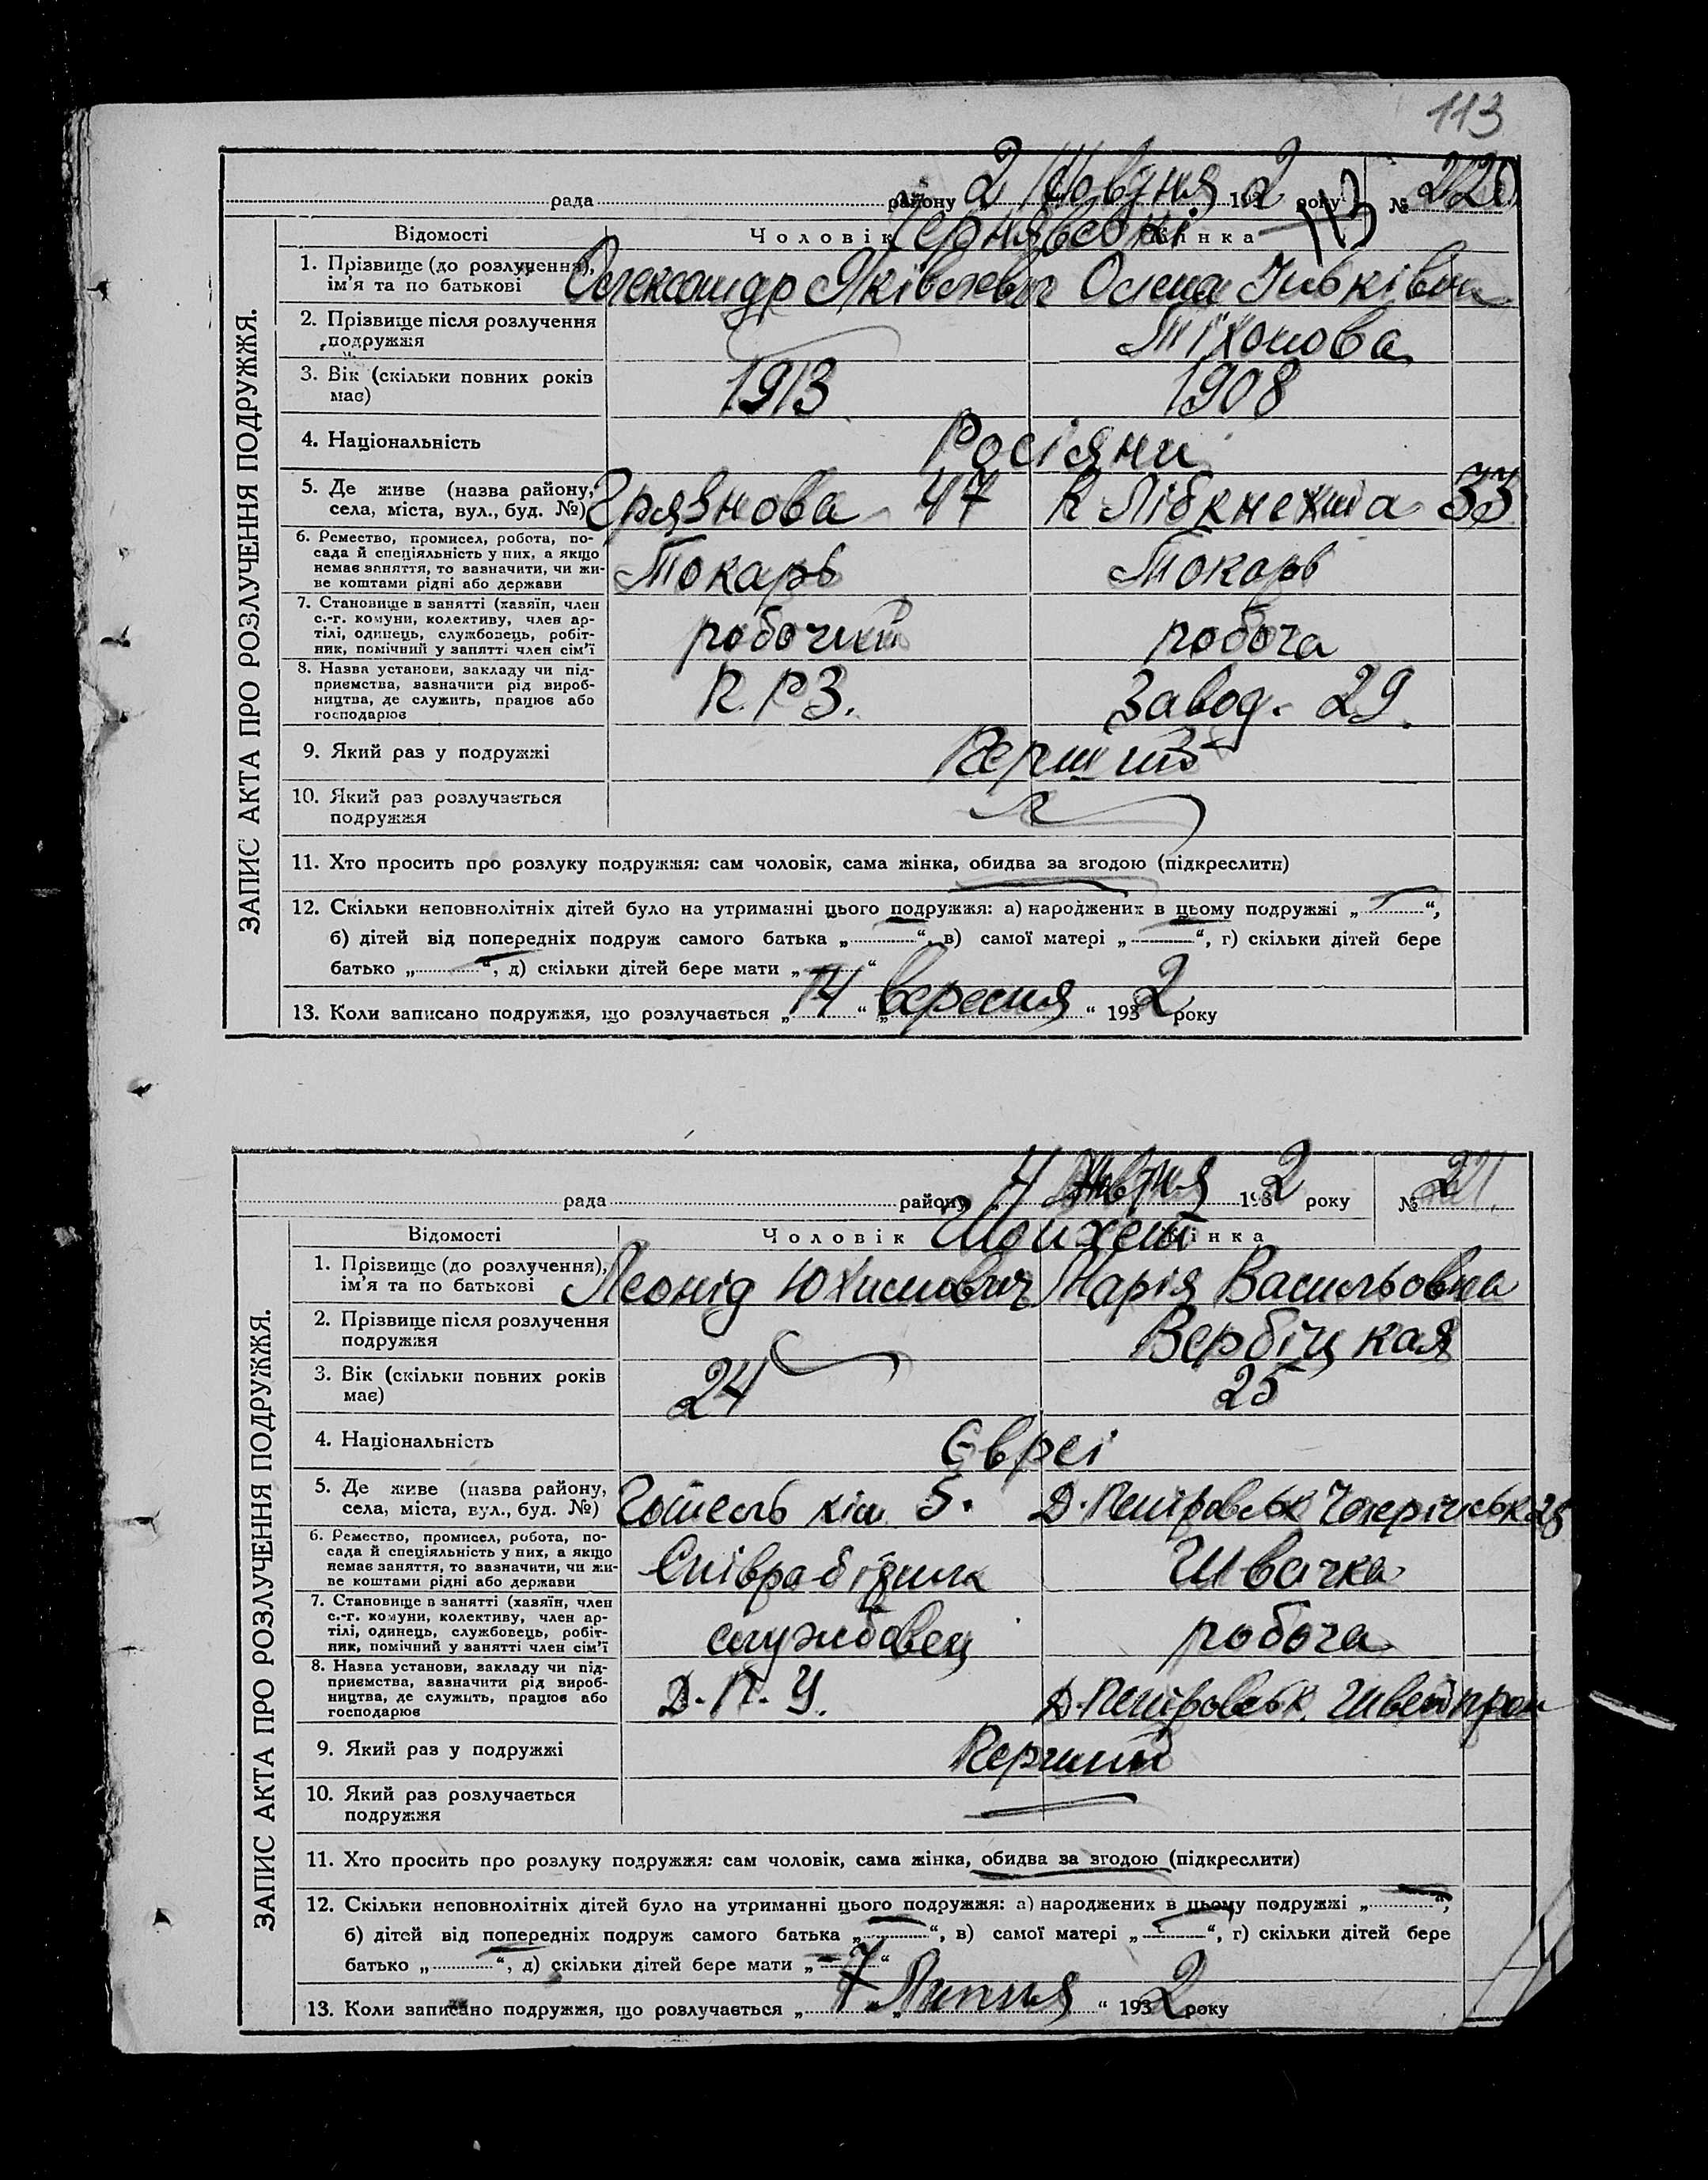 113
рада району 2 Жовтня 1932 року № 220
113
Відомості Чоловік Жінка
Чернявські
ЗАПИС АКТА ПРО РОЗЛУЧЕННЯ ПОДРУЖЖЯ.
1. Прізвище (до розлучення), ім'я та по батькові Олександр Яківлевич Олена
2. Прізвище після розлучення подружжя Тіхонова
3. Вік (скільки повних років має) 1913 1908
4. Національність Росіяни
5. Де живе (назва району, села, міста, вул., буд. №) Грязнова 47 К Лібкнехта 33
6. Ремество, промисел, робота, посада й спеціяльність у них, а якщо немає заняття, то зазначити, чи живе коштами рідні або держави Токарь Токарь
7. Становище в занятті (хазяїн, член с.-г. комуни, колективу, член артілі, одинець, службовець, робітник, помічний у занятті член сім'ї робочий робоча
8. Назва установи, закладу чи підприємства, зазначити рід виробництва, де служить, працює або господарює П.Р.З. Завод. 29.
9. Який раз у подружжі Перший
10. Який раз розлучається подружжя
11. Хто просить про розлуку подружжя: сам чоловік, сама жінка, обидва за згодою (підкреслити)
12. Скільки неповнолітніх дітей було на утриманні цього подружжя: а) народжених в цьому подружжі „ “,
б) дітей від попередніх подруж самого батька „ “, в) самої матері „ “, г) скільки дітей бере
батько „ “, д) скільки дітей бере мати „ “
13. Коли записано подружжя, що розлучається „14“ „вересня“ 1932 року
рада району „4 Жовтня 1932 року № 221.
Відомості Чоловік Жінка
Шойхет
ЗАПИС АКТА ПРО РОЗЛУЧЕННЯ ПОДРУЖЖЯ.
1. Прізвище (до розлучення), ім'я та по батькові Леонід Юхимович Марія Васильовна
2. Прізвище після розлучення подружжя Вербіцкая
3. Вік (скільки повних років має) 24 25
4. Національність Євреі
5. Де живе (назва району, села, міста, вул., буд. №) Готель кім 5. Д.Петровськ 25
6. Ремество, промисел, робота, посада й спеціяльність у них, а якщо немає заняття, то зазначити, чи живе коштами рідні або держави Швачка
7. Становище в занятті (хазяїн, член с.-г. комуни, колективу, член артілі, одинець, службовець, робітник, помічний у занятті член сім'ї службовец робоча
8. Назва установи, закладу чи підприємства, зазначити рід виробництва, де служить, працює або господарює Д.П.У. Д.Петровськ. Швейпром
9. Який раз у подружжі Перший
10. Який раз розлучається подружжя
11. Хто просить про розлуку подружжя: сам чоловік, сама жінка, обидва за згодою (підкреслити)
12. Скільки неповнолітніх дітей було на утриманні цього подружжя: а) народжених в цьому подружжі „ “,
б) дітей від попередніх подруж самого батька „ “, в) самої матері „ “, г) скільки дітей бере
батько „ “, д) скільки дітей бере мати „ “
13. Коли записано подружжя, що розлучається „7“ „Липня“ 1932 року